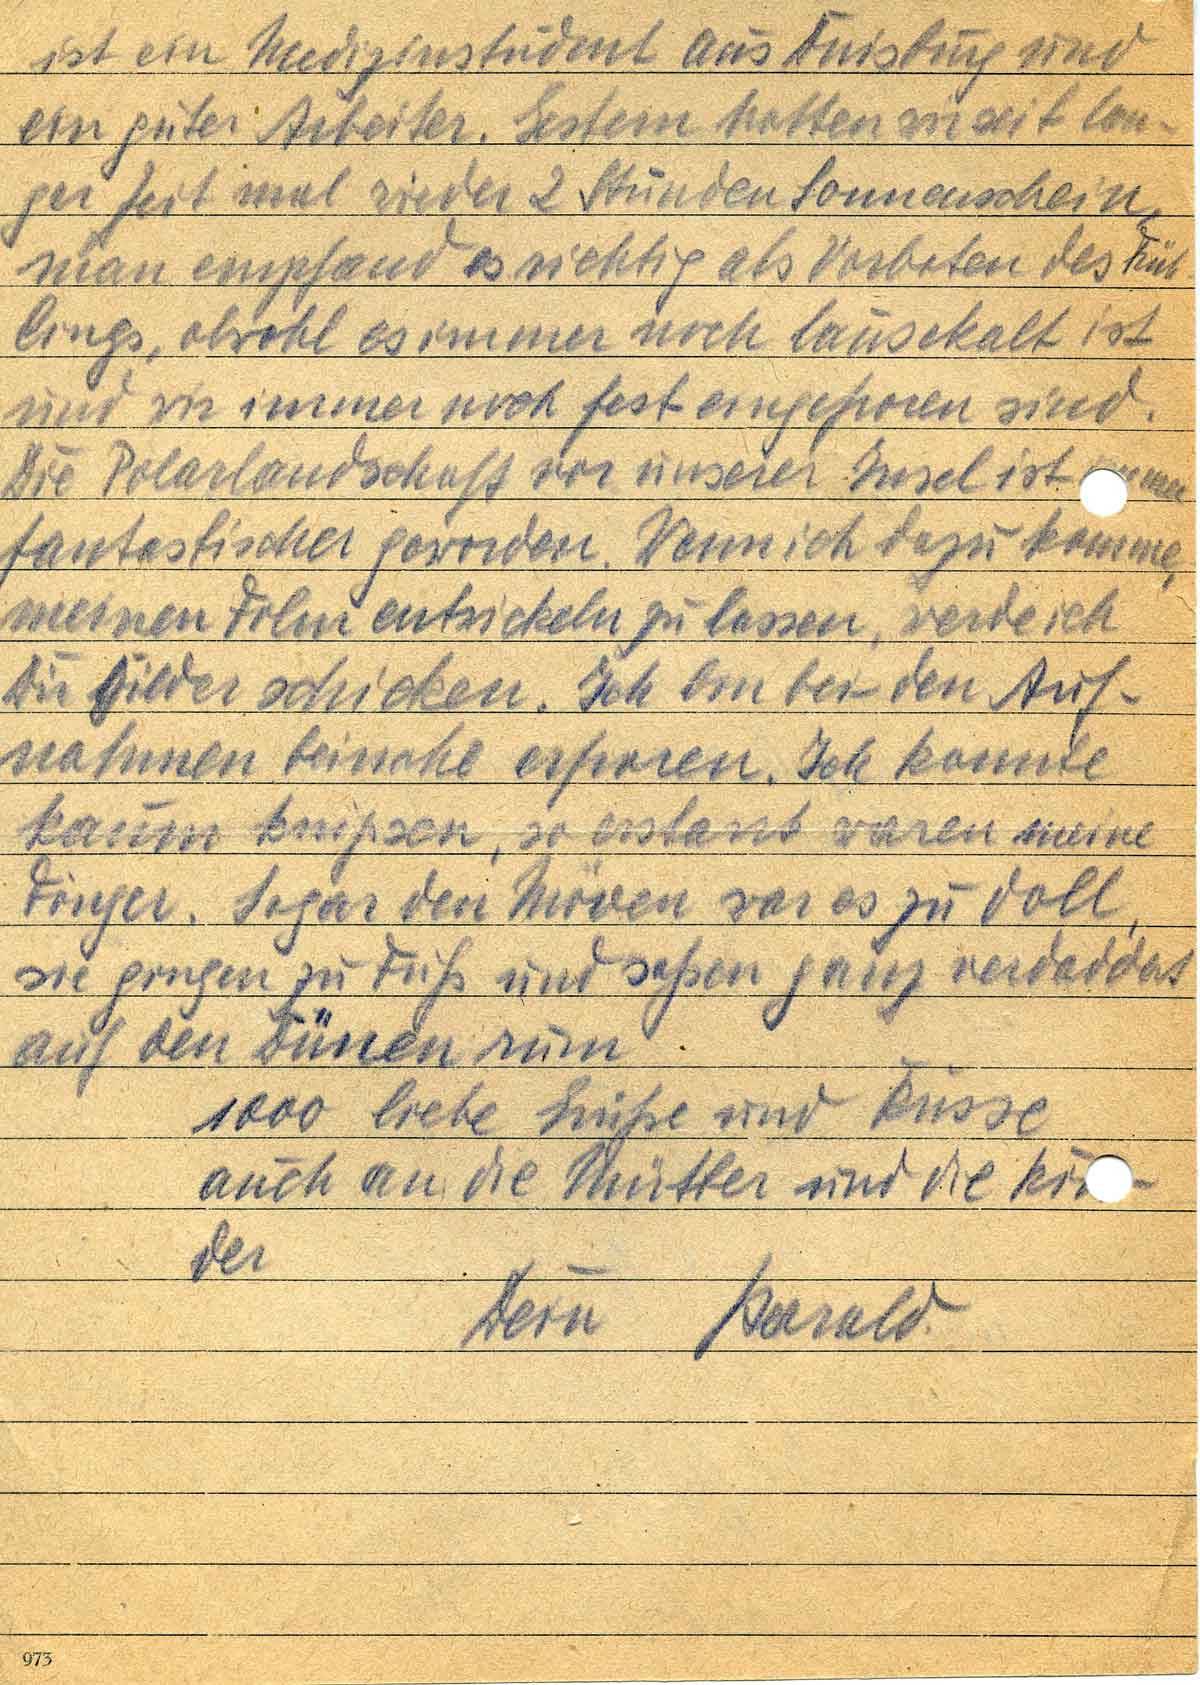 ist ein Medizinstudent aus Duisburg und
ein guter Arbeiter. Gestern hatten wir seit lan-
ger Zeit mal wieder 2 Stunden Sonnenschein,
man empfand es richtig als Vorboten des Früh-
lings, obwohl es immer noch lausekalt ist
und wir immer noch fest eingefroren sind.
Die Polarlandschaft vor unserer Insel ist immer
fantastischer geworden. Wenn ich dazu komme,
meinen Film entwickeln zu lassen, werde ich
Dir Bilder schicken. Ich bin bei den Auf-
nahmen beinahe erfroren. Ich konnte
kaum knipsen, so erstarrt waren meine
Finger. Sogar den Möven war es zu doll,
sie gingen zu Fuß und saßen ganz verdaddert
auf den Dünen rum
1000 liebe Grüße und Küsse
auch an die Mutter und die Kin-
der
Dein Harald.
973